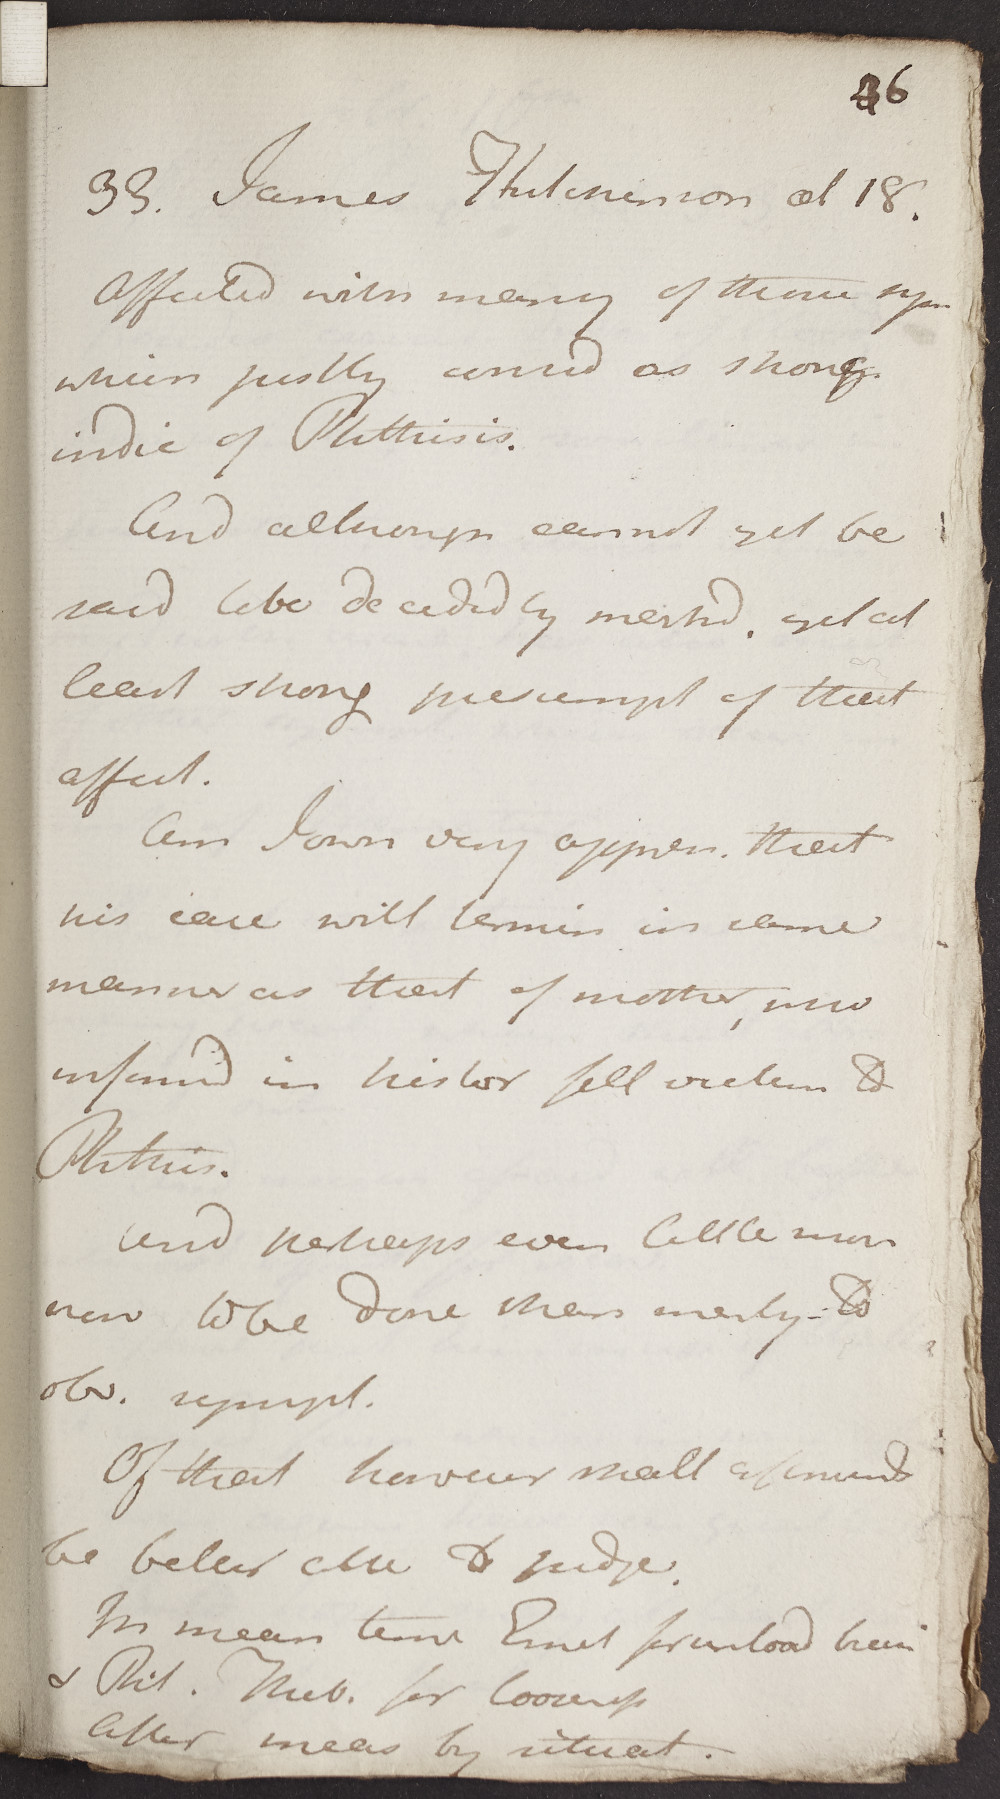 36
33. James Hutchinson æt 18.
Affected with many of those sym
which justly consid as strong
indic of Phthisis.
And although cannot yet be
said to be decidedly markd. yet at
least strong presumpt of that
affect.
Am I own very appreh. that
his case will termin in same
manner as that of mother, who
informd in histor fell victim to
Phthis.
And perhaps even little more
now to be done than merely to
obv. sympt.
Of that however shall afterwards
be better able to judge.
In mean time Emet for unload
& Pil. Theb. for
After meas by situat.